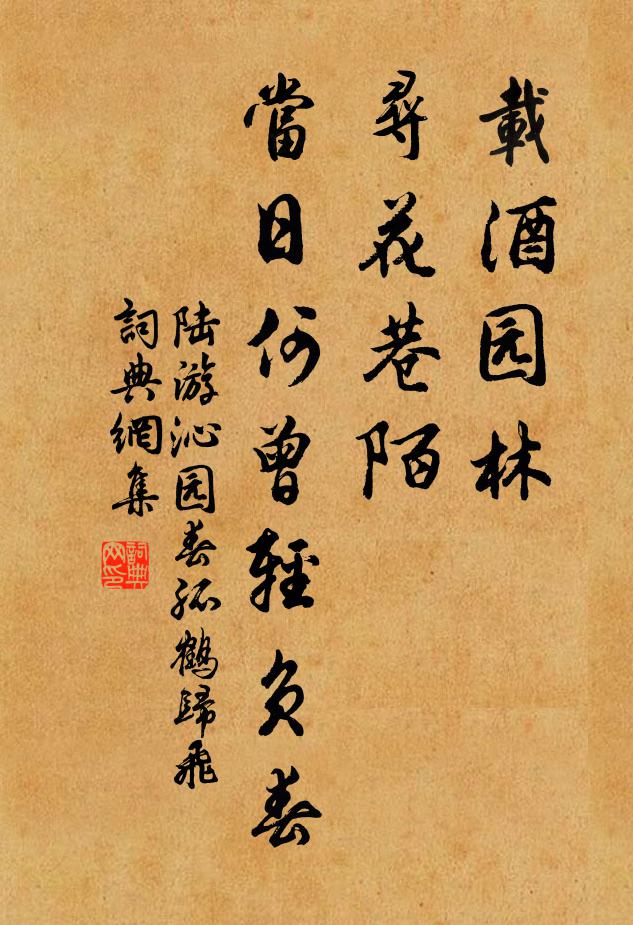 載酒园林
尋花巷陌
當日何曾輕負春
陆游沁园春孤鶴歸飛
詞典網集
詞典网印